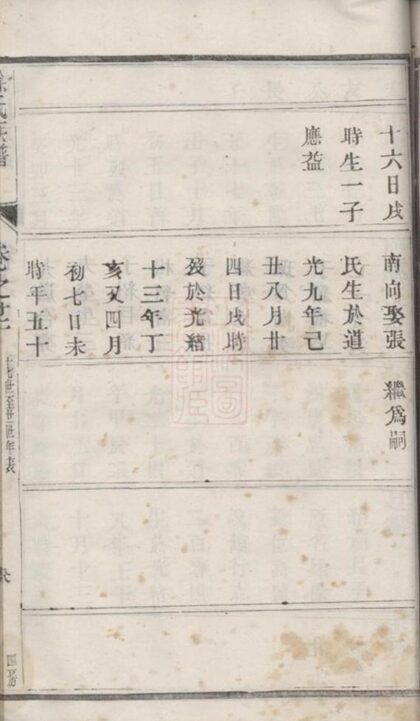 十六日戌
時生一子
應益
南向娶張
氏生於道
光九年己
丑八月廿
四日戌時
歿於光緒
十三年丁
亥又四月
初七日未
時年五十
繼爲嗣
氏族譜
卷之廿
世至世年表
四房